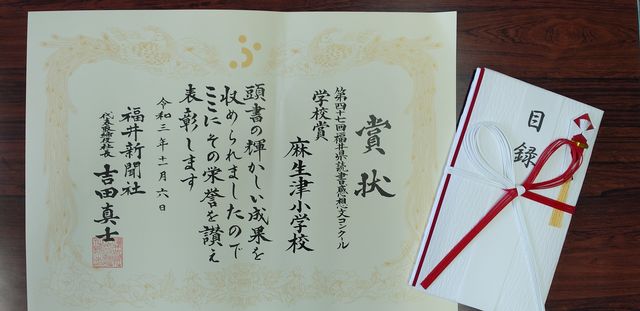 賞状
第四十七回福井県読書感想文コンクール
学校賞
麻生津小学校
頭書の輝かしい成果を
収められましたので
ここにその栄誉を讃え
表彰します
令和三年十一月六日
福井新聞社
代表取締役社長 吉田真士
目録